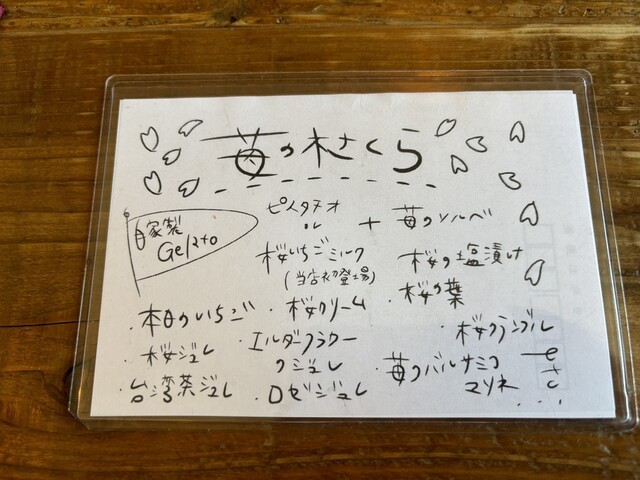 苺のさくら
自家製
Gelato
ピスタチオ
or
桜いちごミルク
(当店初登場)
+ 苺のソルベ
桜の塩漬け
・桜の葉
・本日のいちご
・桜クリーム
・桜のクランブル
・桜ジュレ
・エルダーフラワー
のジュレ
・苺のバルサミコ
マリネ
・台湾茶ジュレ
・ロゼジュレ
etc
...